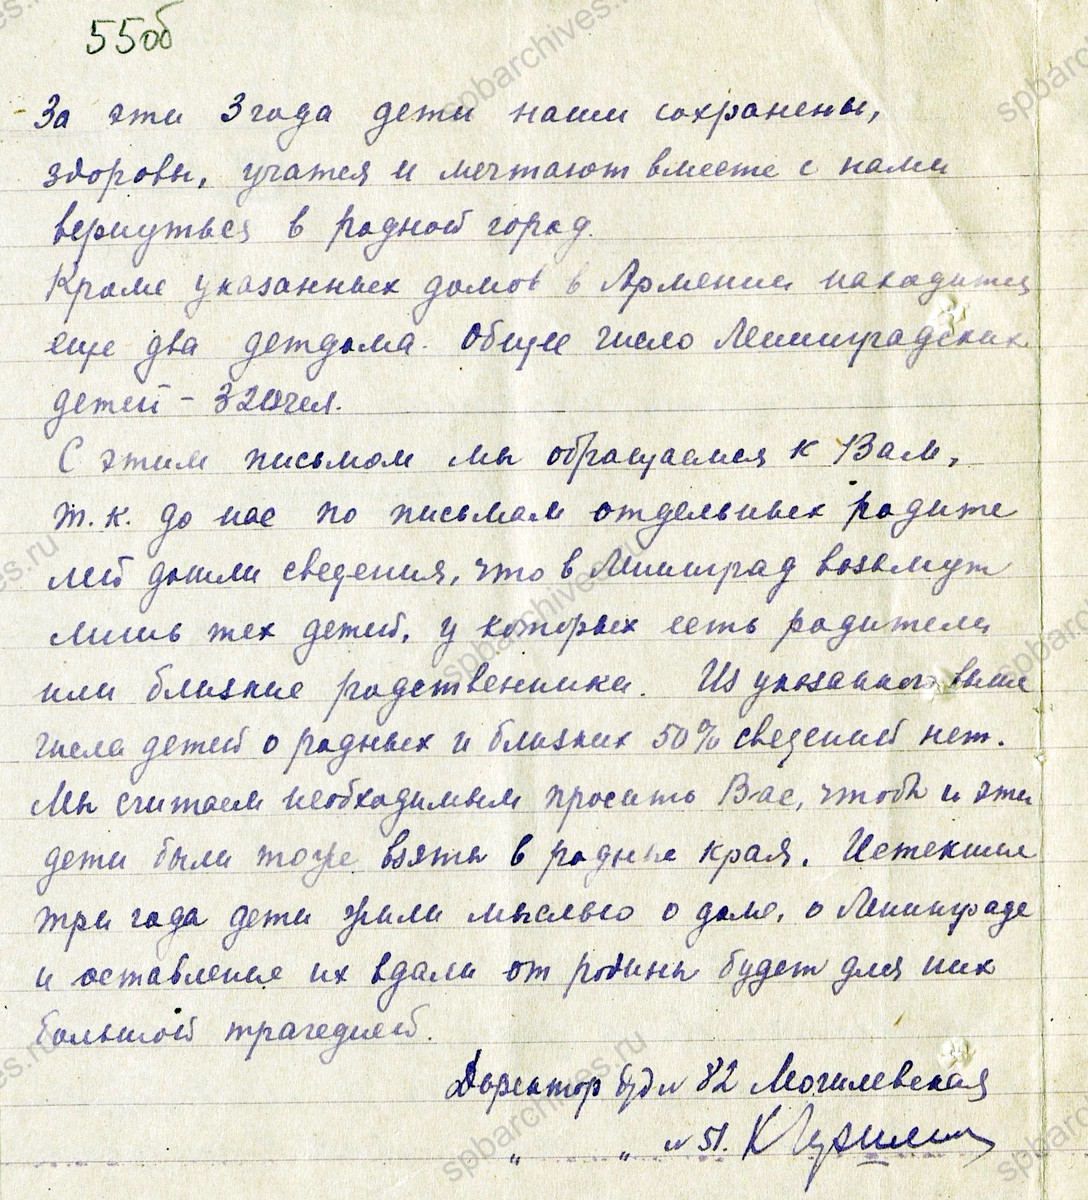 55об
За эти 3 года дети наши сохранены,
здоровы, учатся и мечтают вместе с нами
вернуться в родной город.
Кроме указанных домов в Армении находится
еще два детдома. Общее число Ленинградских
детей – 320 чел.
С этим письмом мы обращаемся к Вам,
т.к. до нас по письмам отдельных родите
лей дошли сведения, что в Ленинград возьмут
лишь тех детей, у которых есть родители
или близкие родственники. Из указанного выше
числа детей о родных и близких 50% сведений нет.
Мы считаем необходимым просить Вас, чтобы и эти
дети были тоже взяты в родные края. Истекшие
три года дети жили мыслью о доме, о Ленинграде
и оставление их вдали от родины будет для них
большой трагедией.
Директор д/д № 82 Могилевская
" " № 51.
spbarchives.ru